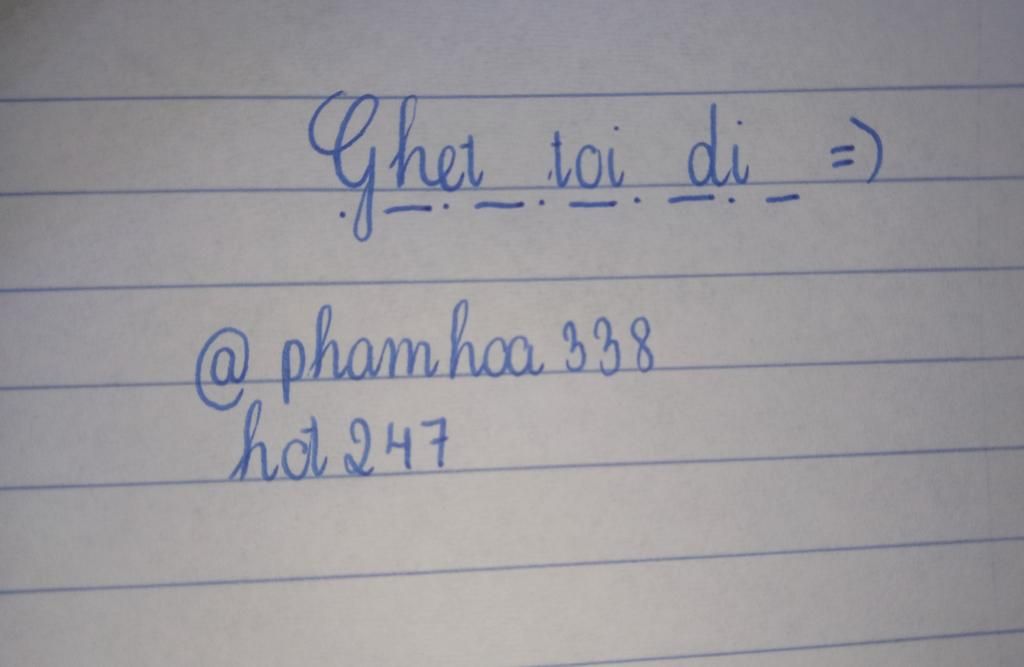 Ghet toi di =)
@phamhoa338
hot247